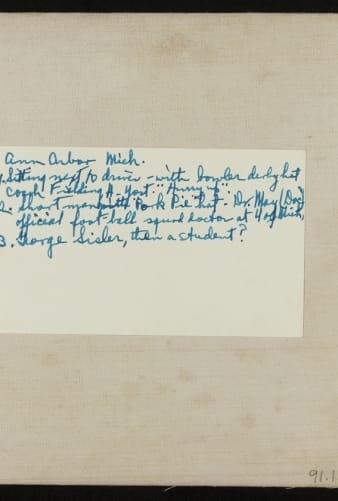 Ann Arbor Mich.
1. Sitting next to driver - with bowler derby hat
Coach Fielding H. Yost. "Hurry up".
2. Short man with Pork Pie hat - Dr. May (Doc)
official foot-ball squad doctor at U of Mich,
3. George Sisler, then a student?
91.1